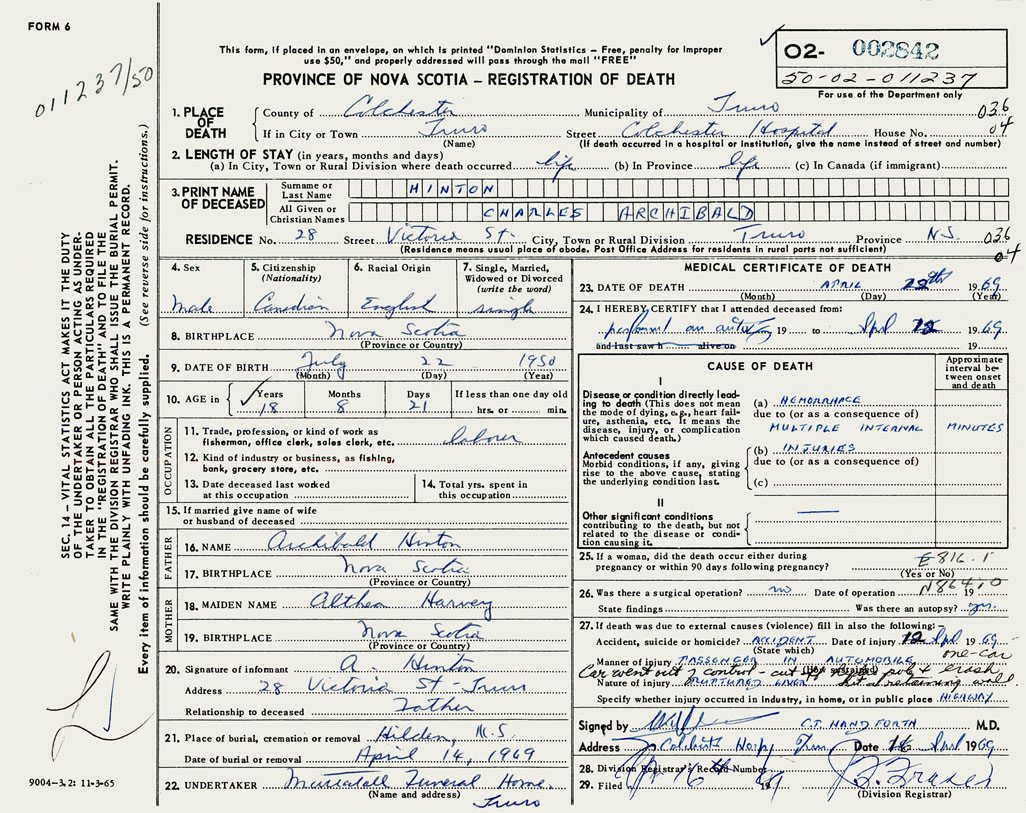 FORM 6
011237/50
This form, if placed in an envelope, on which is printed "Dominion Statistics – Free, penalty for improper
use $50," and properly addressed will pass through the mail "FREE"
PROVINCE OF NOVA SCOTIA – REGISTRATION OF DEATH
O2- 002842
50-02-011237
For use of the Department only
1. PLACE OF DEATH
County of Colchester Municipality of Truro 036
If in City or Town Truro Street Colchester Hospital House No. 04
(Name) (If death occurred in a hospital or institution, give the name instead of street and number)
2. LENGTH OF STAY (in years, months and days)
(a) In City, Town or Rural Division where death occurred life (b) In Province life (c) In Canada (if immigrant)
3. PRINT NAME OF DECEASED
Surname or Last Name HINTON
All Given or Christian Names CHARLES ARCHIBALD
RESIDENCE No. 28 Street Victoria St. City, Town or Rural Division Truro Province N.S. 036
(Residence means usual place of abode. Post Office Address for residents in rural parts not sufficient) 04
4. Sex male
5. Citizenship (Nationality) Canadian
6. Racial Origin English
7. Single, Married, Widowed or Divorced (write the word) single
8. BIRTHPLACE Nova Scotia
(Province or Country)
9. DATE OF BIRTH July 22 1950
(Month) (Day) (Year)
10. AGE in Years 18 Months 8 Days 21 If less than one day old hrs. or min.
OCCUPATION
11. Trade, profession, or kind of work as
fisherman, office clerk, sales clerk, etc. labour
12. Kind of industry or business, as fishing,
bank, grocery store, etc.
13. Date deceased last worked
at this occupation
14. Total yrs. spent in
this occupation
15. If married give name of wife
or husband of deceased
FATHER
16. NAME Archibald Hinton
17. BIRTHPLACE Nova Scotia
(Province or Country)
MOTHER
18. MAIDEN NAME Althea Harvey
19. BIRTHPLACE Nova Scotia
(Province or Country)
20. Signature of informant A. Hinton
Address 28 Victoria St - Truro
Relationship to deceased Father
21. Place of burial, cremation or removal Hilden, N.S.
Date of burial or removal April 14, 1969
22. UNDERTAKER Funeral Home.
(Name and address) Truro
MEDICAL CERTIFICATE OF DEATH
23. DATE OF DEATH APRIL 1969
(Month) (Day) (Year)
24. I HEREBY CERTIFY that I attended deceased from:
performed an autopsy 19 to April 12 1969
and last saw h alive on
CAUSE OF DEATH
Approximate interval between onset and death
I
Disease or condition directly leading
to death (This does not mean
the mode of dying, e.g., heart failure,
asthenia, etc. It means the
disease, injury, or complication
which caused death.)
(a) HEMORRHAGE
due to (or as a consequence of)
MULTIPLE INTERNAL MINUTES
Antecedent causes
Morbid conditions, if any, giving
rise to the above cause, stating
the underlying condition last.
(b) INJURIES
due to (or as a consequence of)
(c)
II
Other significant conditions
contributing to the death, but not
related to the disease or condition
causing it.
25. If a woman, did the death occur either during
pregnancy or within 90 days following pregnancy?
(Yes or No)
E816.1
N864.0
26. Was there a surgical operation? no Date of operation 19
State findings Was there an autopsy? yes.
27. If death was due to external causes (violence) fill in also the following:
Accident, suicide or homicide? ACCIDENT Date of injury 12 April 1969
(State which)
Manner of injury PASSENGER IN AUTOMOBILE one-car
Car went out of control - cut off pole & crash
Nature of injury RUPTURED LIVER hit a retaining wall
Specify whether injury occurred in industry, in home, or in public place HIGHWAY
Signed by C.T. HANDFORTH M.D.
Address Hosp Truro Date April 1969
28. Division Registrar's Record Number
29. Filed 19
(Division Registrar)
SEC. 14 – VITAL STATISTICS ACT MAKES IT THE DUTY
OF THE UNDERTAKER OR PERSON ACTING AS UNDER-
TAKER TO OBTAIN ALL THE PARTICULARS REQUIRED
IN THE "REGISTRATION OF DEATH" AND TO FILE THE
SAME WITH THE DIVISION REGISTRAR WHO SHALL ISSUE THE BURIAL PERMIT.
WRITE PLAINLY WITH UNFADING INK. THIS IS A PERMANENT RECORD.
Every item of information should be carefully supplied. (See reverse side for instructions.)
9004-3.2: 11-3-65